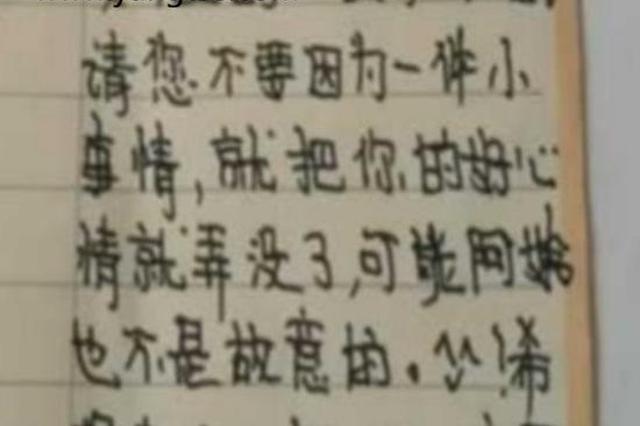 请您不要因为一件小
事情,就把你的好心
情就弄没了,可能阿
也不是故意的。希